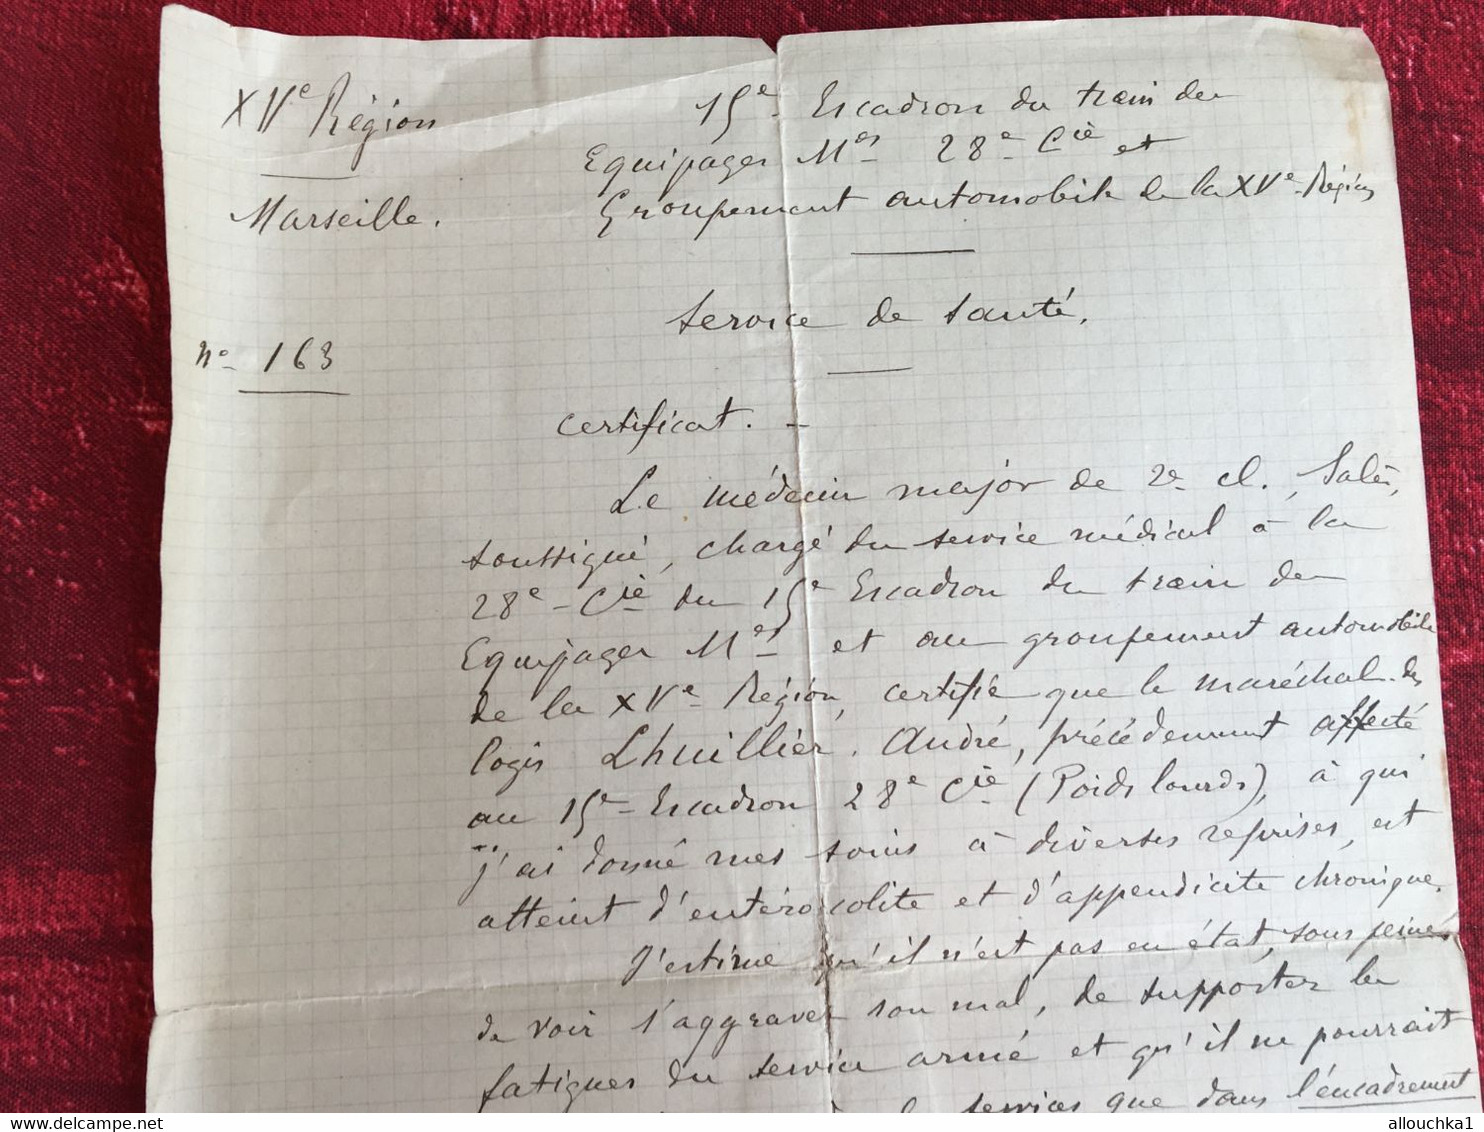 XVe Région
Marseille.
15e Escadron du train des
Equipages Mres 28e Cie et
Groupement automobile de la XVe Région
Service de Santé.
No 163
Certificat. -
Le médecin major de 2e cl., Salès,
soussigné, chargé du service médical à la
28e Cie du 15e Escadron du train des
Equipages Mres et au groupement automobile
de la XVe Région, certifie que le maréchal des
logis Lhuillier, André, précédemment affecté
au 15e Escadron 28e Cie (Poids lourds), à qui
j'ai donné mes soins à diverses reprises, est
atteint d'entérocolite et d'appendicite chronique.
J'estime qu'il n'est pas en état, sous peine
de voir s'aggraver son mal, de supporter les
fatigues du service armé et qu'il ne pourrait
services que dans l'encadrement
allouchka1